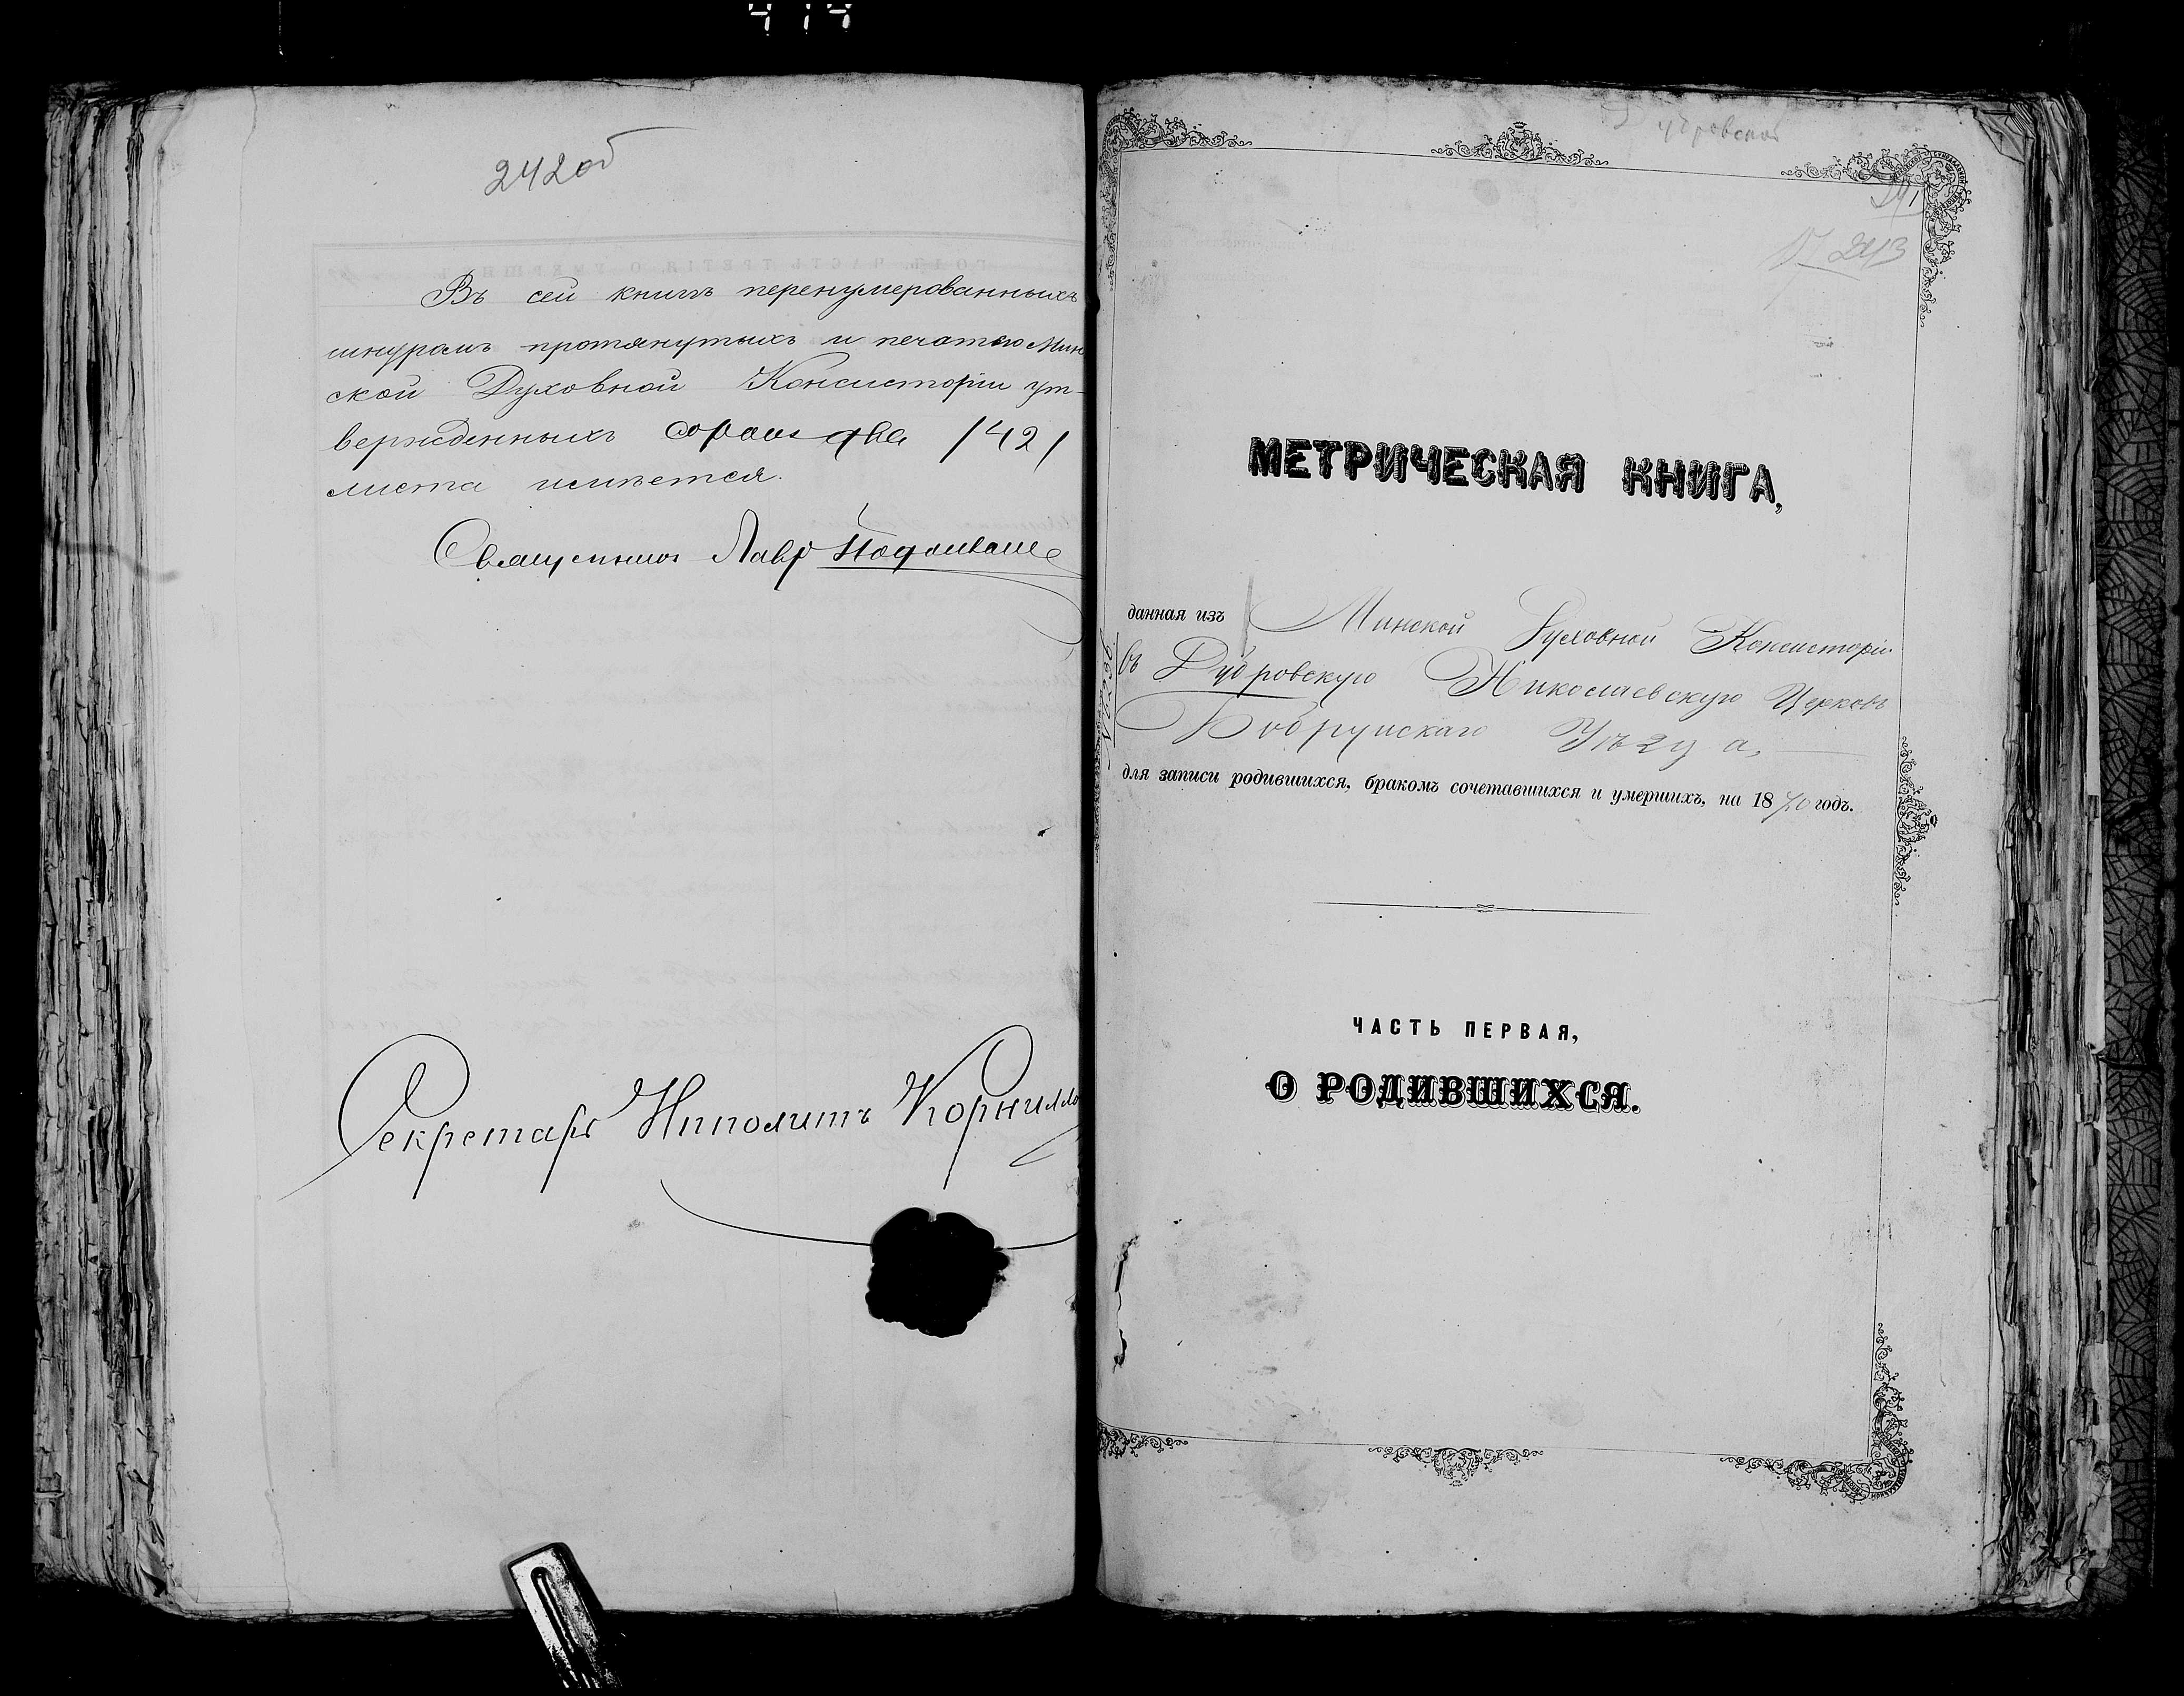 414
242об
Въ сей книгѣ перенумерованныхъ
шнуромъ протянутыхъ и печатью Мин
ской Духовной Консисторіи ут-
вержденныхъ сорокъ два /42/
листа имѣется.
Священникъ Лавр
Секретарь Ипполитъ Корнило
243
МЕТРИЧЕСКАЯ КНИГА,
данная изъ Минской Духовной Консисторіи
въ Дубровскую Николаевскую Церковь
Бобруйскаго Уѣзда,
для записи родившихся, бракомъ сочетавшихся и умершихъ, на 1870 годъ.
ЧАСТЬ ПЕРВАЯ,
О РОДИВШИХСЯ.